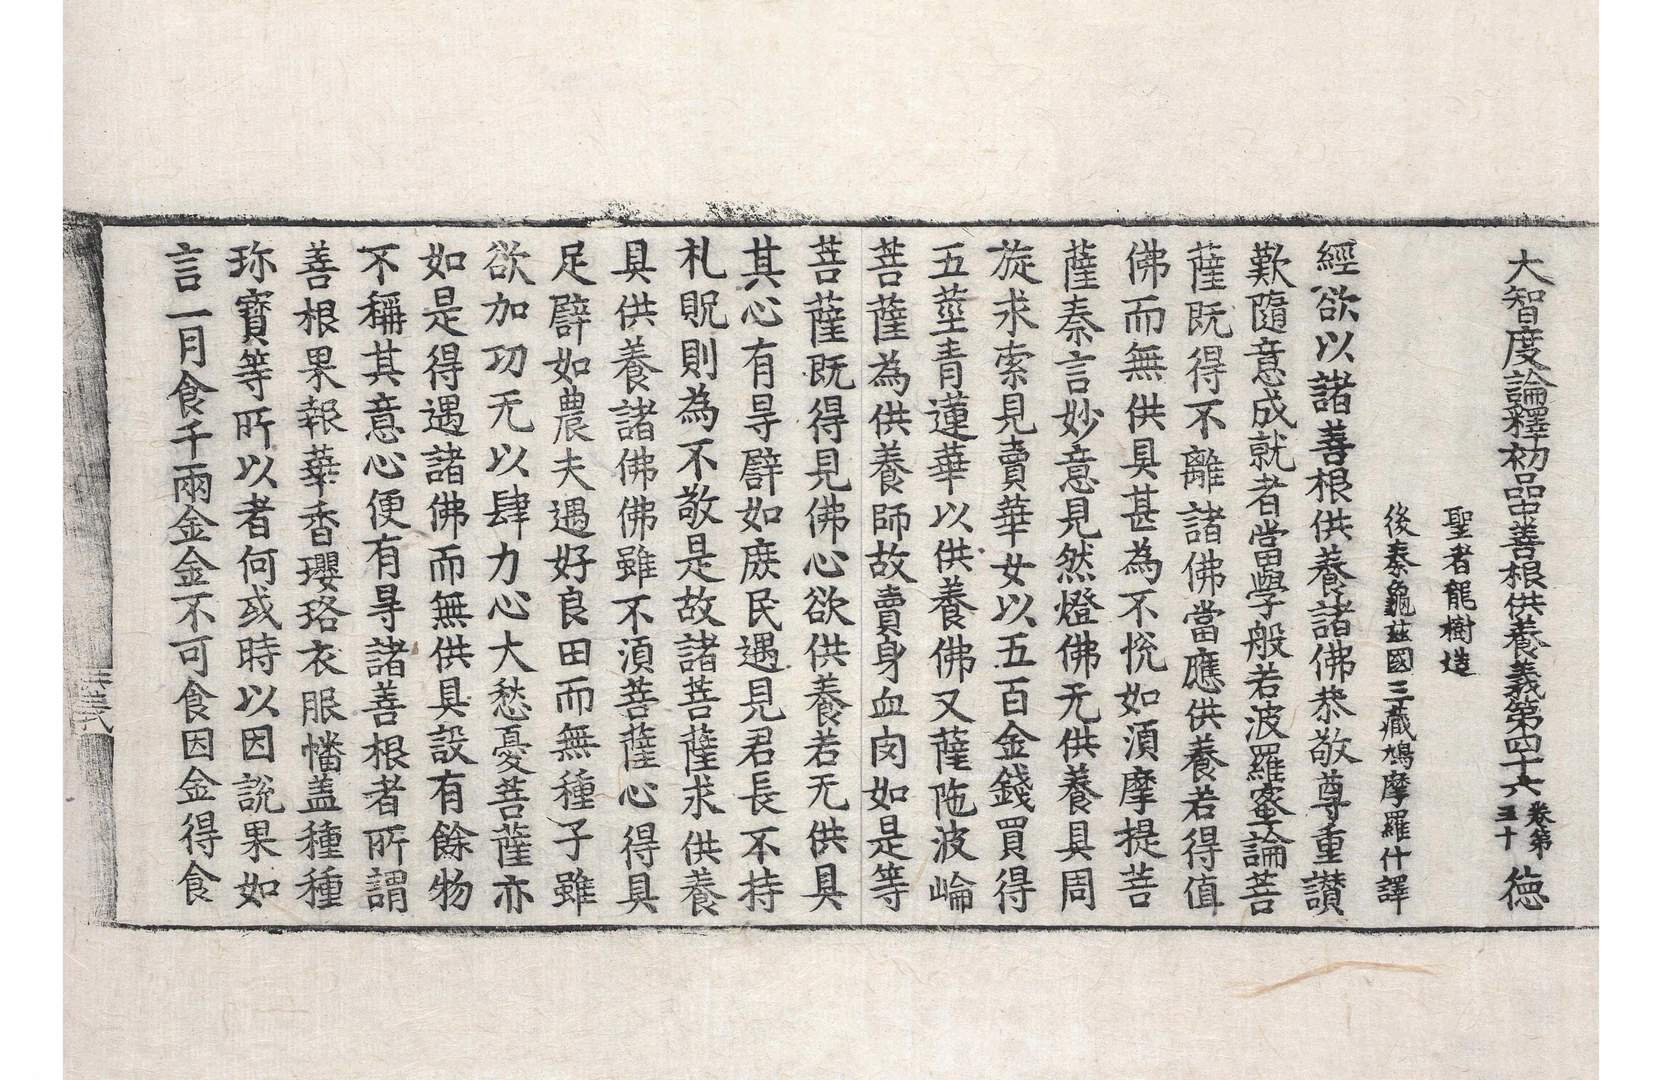 大智度論釋初品中善根供養義第四十六 卷第三十 德
聖者龍樹造
後秦龜茲國三藏鳩摩羅什譯
經欲以諸善根供養諸佛恭敬尊重讃
歎隨意成就者當學般若波羅蜜論菩
薩既得不離諸佛當應供養若得值
佛而無供具甚為不悅如湏摩提菩
薩秦言妙意見然燈佛无供養具周
旋求索見賣華女以五百金錢買得
五莖青蓮華以供養佛又薩陁波崘
菩薩為供養師故賣身血肉如是等
菩薩既得見佛心欲供養若无供具
其心有㝵譬如庻民遇見君長不持
礼貺則為不敬是故諸菩薩求供養
具供養諸佛佛雖不湏菩薩心得具
足譬如農夫遇好良田而無種子雖
欲加功无以肆力心大愁憂菩薩亦
如是得遇諸佛而無供具設有餘物
不稱其意心便有㝵諸善根者所謂
善根果報華香瓔珞衣服幡盖種種
珎寳等所以者何或時以因說果如
言一月食千兩金金不可食因金得食